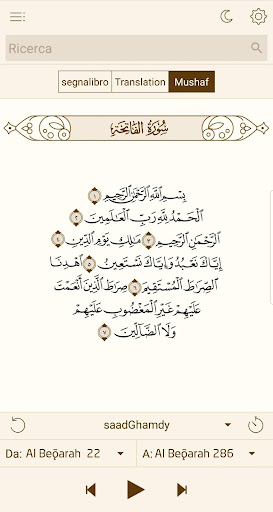 Ricerca
segnalibro Translation Mushaf
سُورَةُ الفَاتِحَةِ
بِسْمِ اللَّهِ الرَّحْمَٰنِ الرَّحِيمِ ١
الْحَمْدُ لِلَّهِ رَبِّ الْعَالَمِينَ ٢
الرَّحْمَٰنِ الرَّحِيمِ ٣ مَالِكِ يَوْمِ الدِّينِ ٤
إِيَّاكَ نَعْبُدُ وَإِيَّاكَ نَسْتَعِينُ ٥ اهْدِنَا
الصِّرَاطَ الْمُسْتَقِيمَ ٦ صِرَاطَ الَّذِينَ أَنْعَمْتَ
عَلَيْهِمْ غَيْرِ الْمَغْضُوبِ عَلَيْهِمْ
وَلَا الضَّالِّينَ ٧
saadGhamdy
Da: Al Beq̄arah 22 A: Al Beq̄arah 286